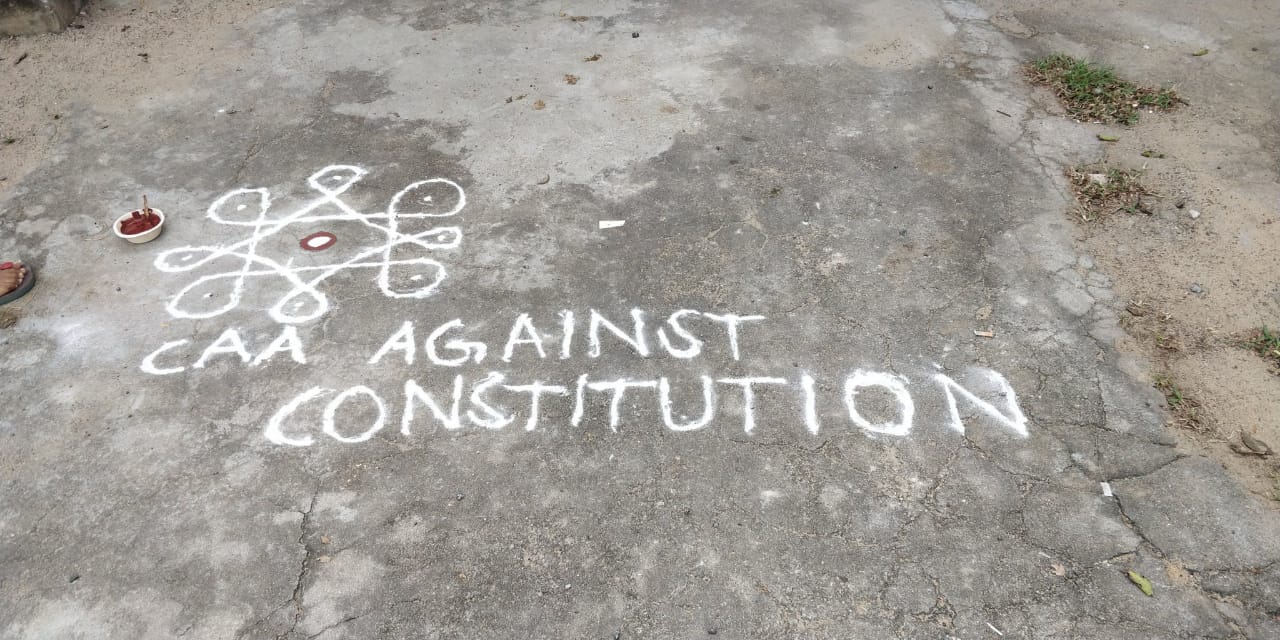 CAA AGAINST
CONSTITUTION